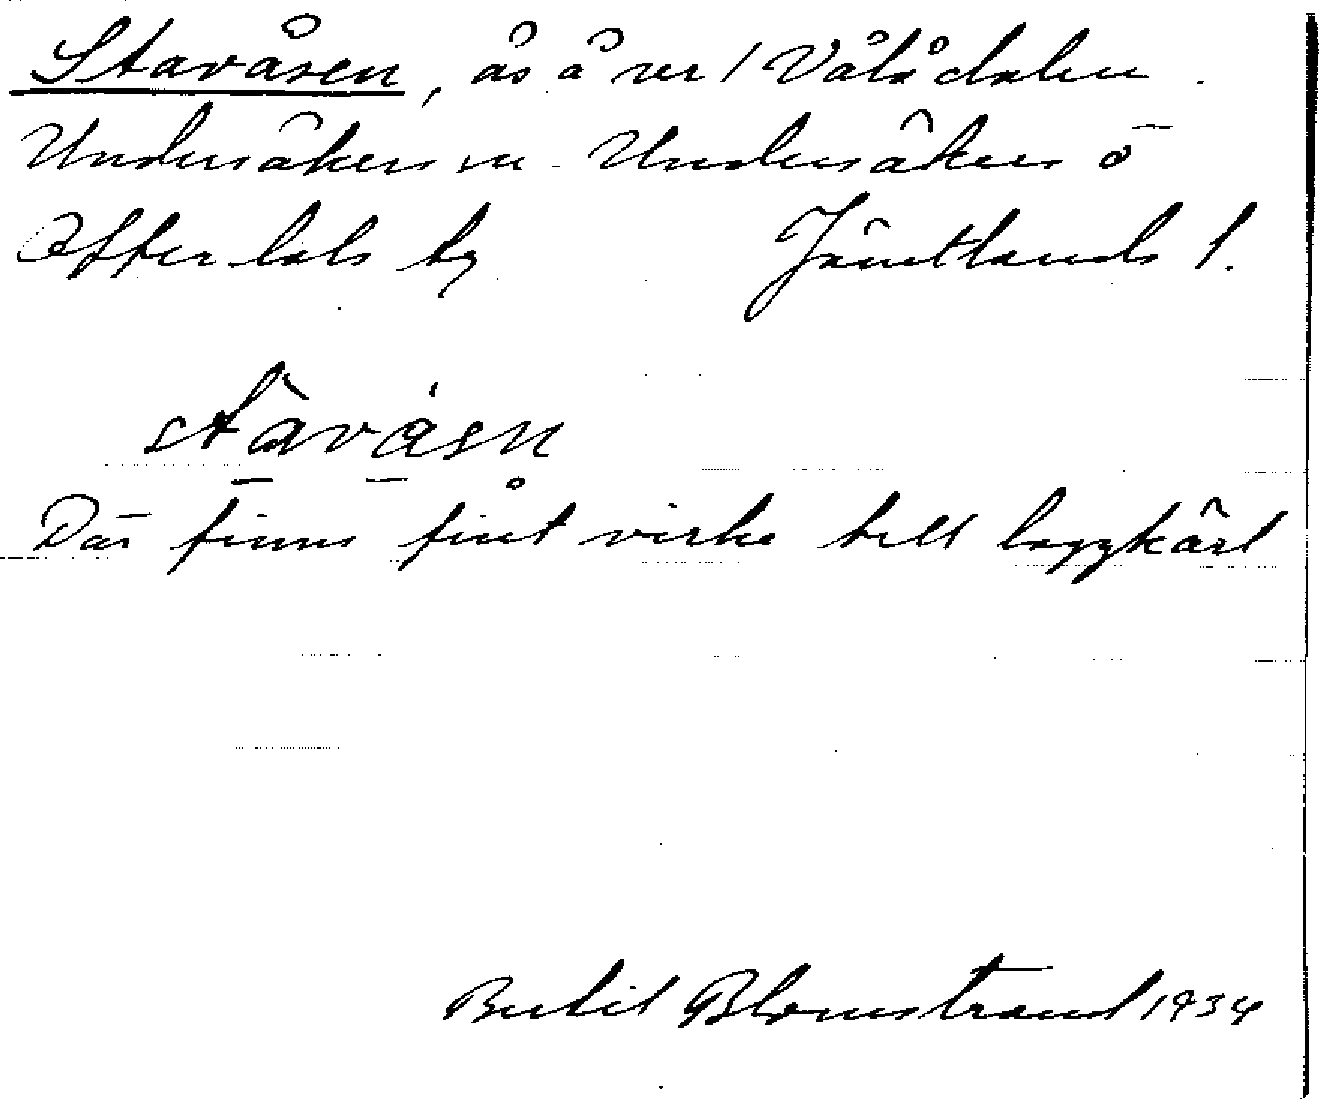 Stavåsen, ås Vålådalen.
Undersåkers sn Undersåkers
Offerdals tg Jämtlands l.
stavåsn
Där finns fint virke till laggkärl
Bertil Blomstrand 1934